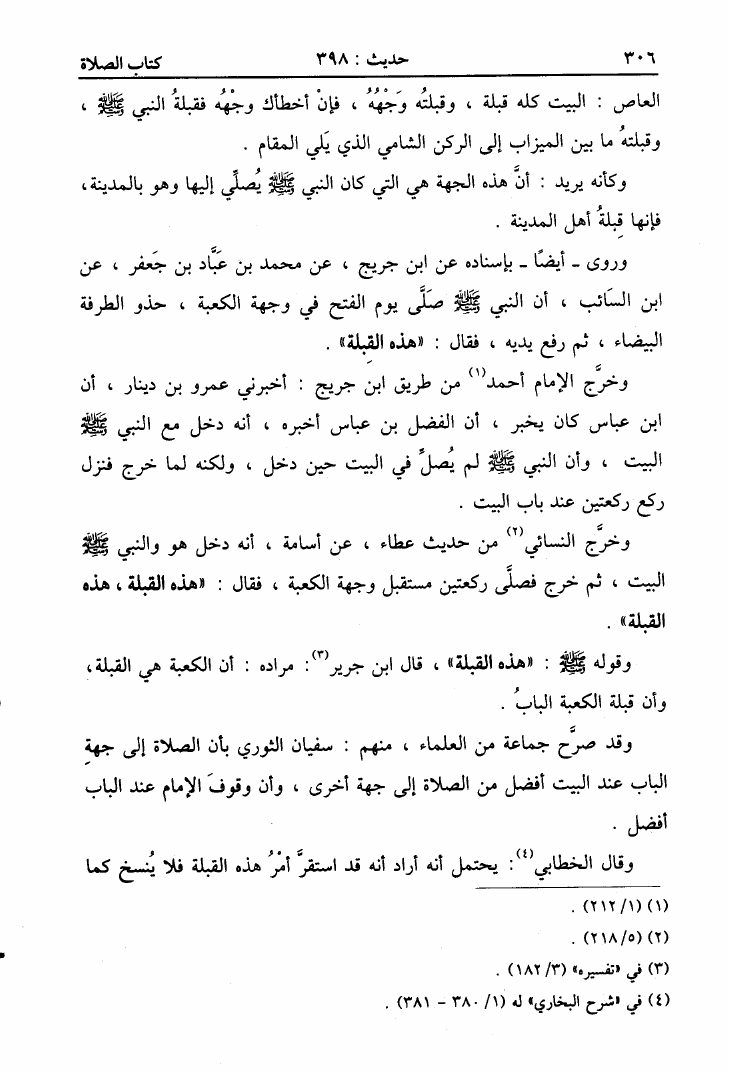 ٣٠٦ حديث : ٣٩٨ كتاب الصلاة
العاص : البيت كله قبلة ، وقبلتُه وَجْهُهُ ، فإنْ أخطأك وجْهُه فقبلةُ النبي ﷺ ،
وقبلتهُ ما بين الميزاب إلى الركن الشامي الذي يَلي المقام .
وكأنه يريد : أنَّ هذه الجهة هي التي كان النبي ﷺ يُصلِّي إليها وهو بالمدينة،
فإنها قبلةُ أهل المدينة .
وروى ـ أيضًا ـ بإسناده عن ابن جريج ، عن محمد بن عَبَّاد بن جَعفر ، عن
ابن السَائب ، أن النبي ﷺ صَلَّى يوم الفتح في وجهة الكعبة ، حذو الطرفة
البيضاء ، ثم رفع يديه ، فقال : «هذه القبلة» .
وخرَّج الإمام أحمد(١) من طريق ابن جريج : أخبرني عمرو بن دينار ، أن
ابن عباس كان يخبر ، أن الفضل بن عباس أخبره ، أنه دخل مع النبي ﷺ
البيت ، وأن النبي ﷺ لم يُصلِّ في البيت حين دخل ، ولكنه لما خرج فنزل
ركع ركعتين عند باب البيت .
وخرَّج النسائي(٢) من حديث عطاء ، عن أسامة ، أنه دخل هو والنبي ﷺ
البيت ، ثم خرج فصلَّى ركعتين مستقبل وجهة الكعبة ، فقال : «هذه القبلة ، هذه
القبلة» .
وقوله ﷺ : «هذه القبلة» ، قال ابن جرير(٣): مراده : أن الكعبة هي القبلة،
وأن قبلة الكعبة البابُ .
وقد صرَّح جماعة من العلماء ، منهم : سفيان الثوري بأن الصلاة إلى جهةِ
الباب عند البيت أفضل من الصلاة إلى جهة أخرى ، وأن وقوفَ الإمام عند الباب
أفضل .
وقال الخطابي(٤): يحتمل أنه أراد أنه قد استقرَّ أمْرُ هذه القبلة فلا يُنسخ كما
(١) (٢١٢/١) .
(٢) (٢١٨/٥) .
(٣) في «تفسيره» (١٨٢/٣) .
(٤) في «شرح البخاري» له (٣٨٠/١ - ٣٨١) .